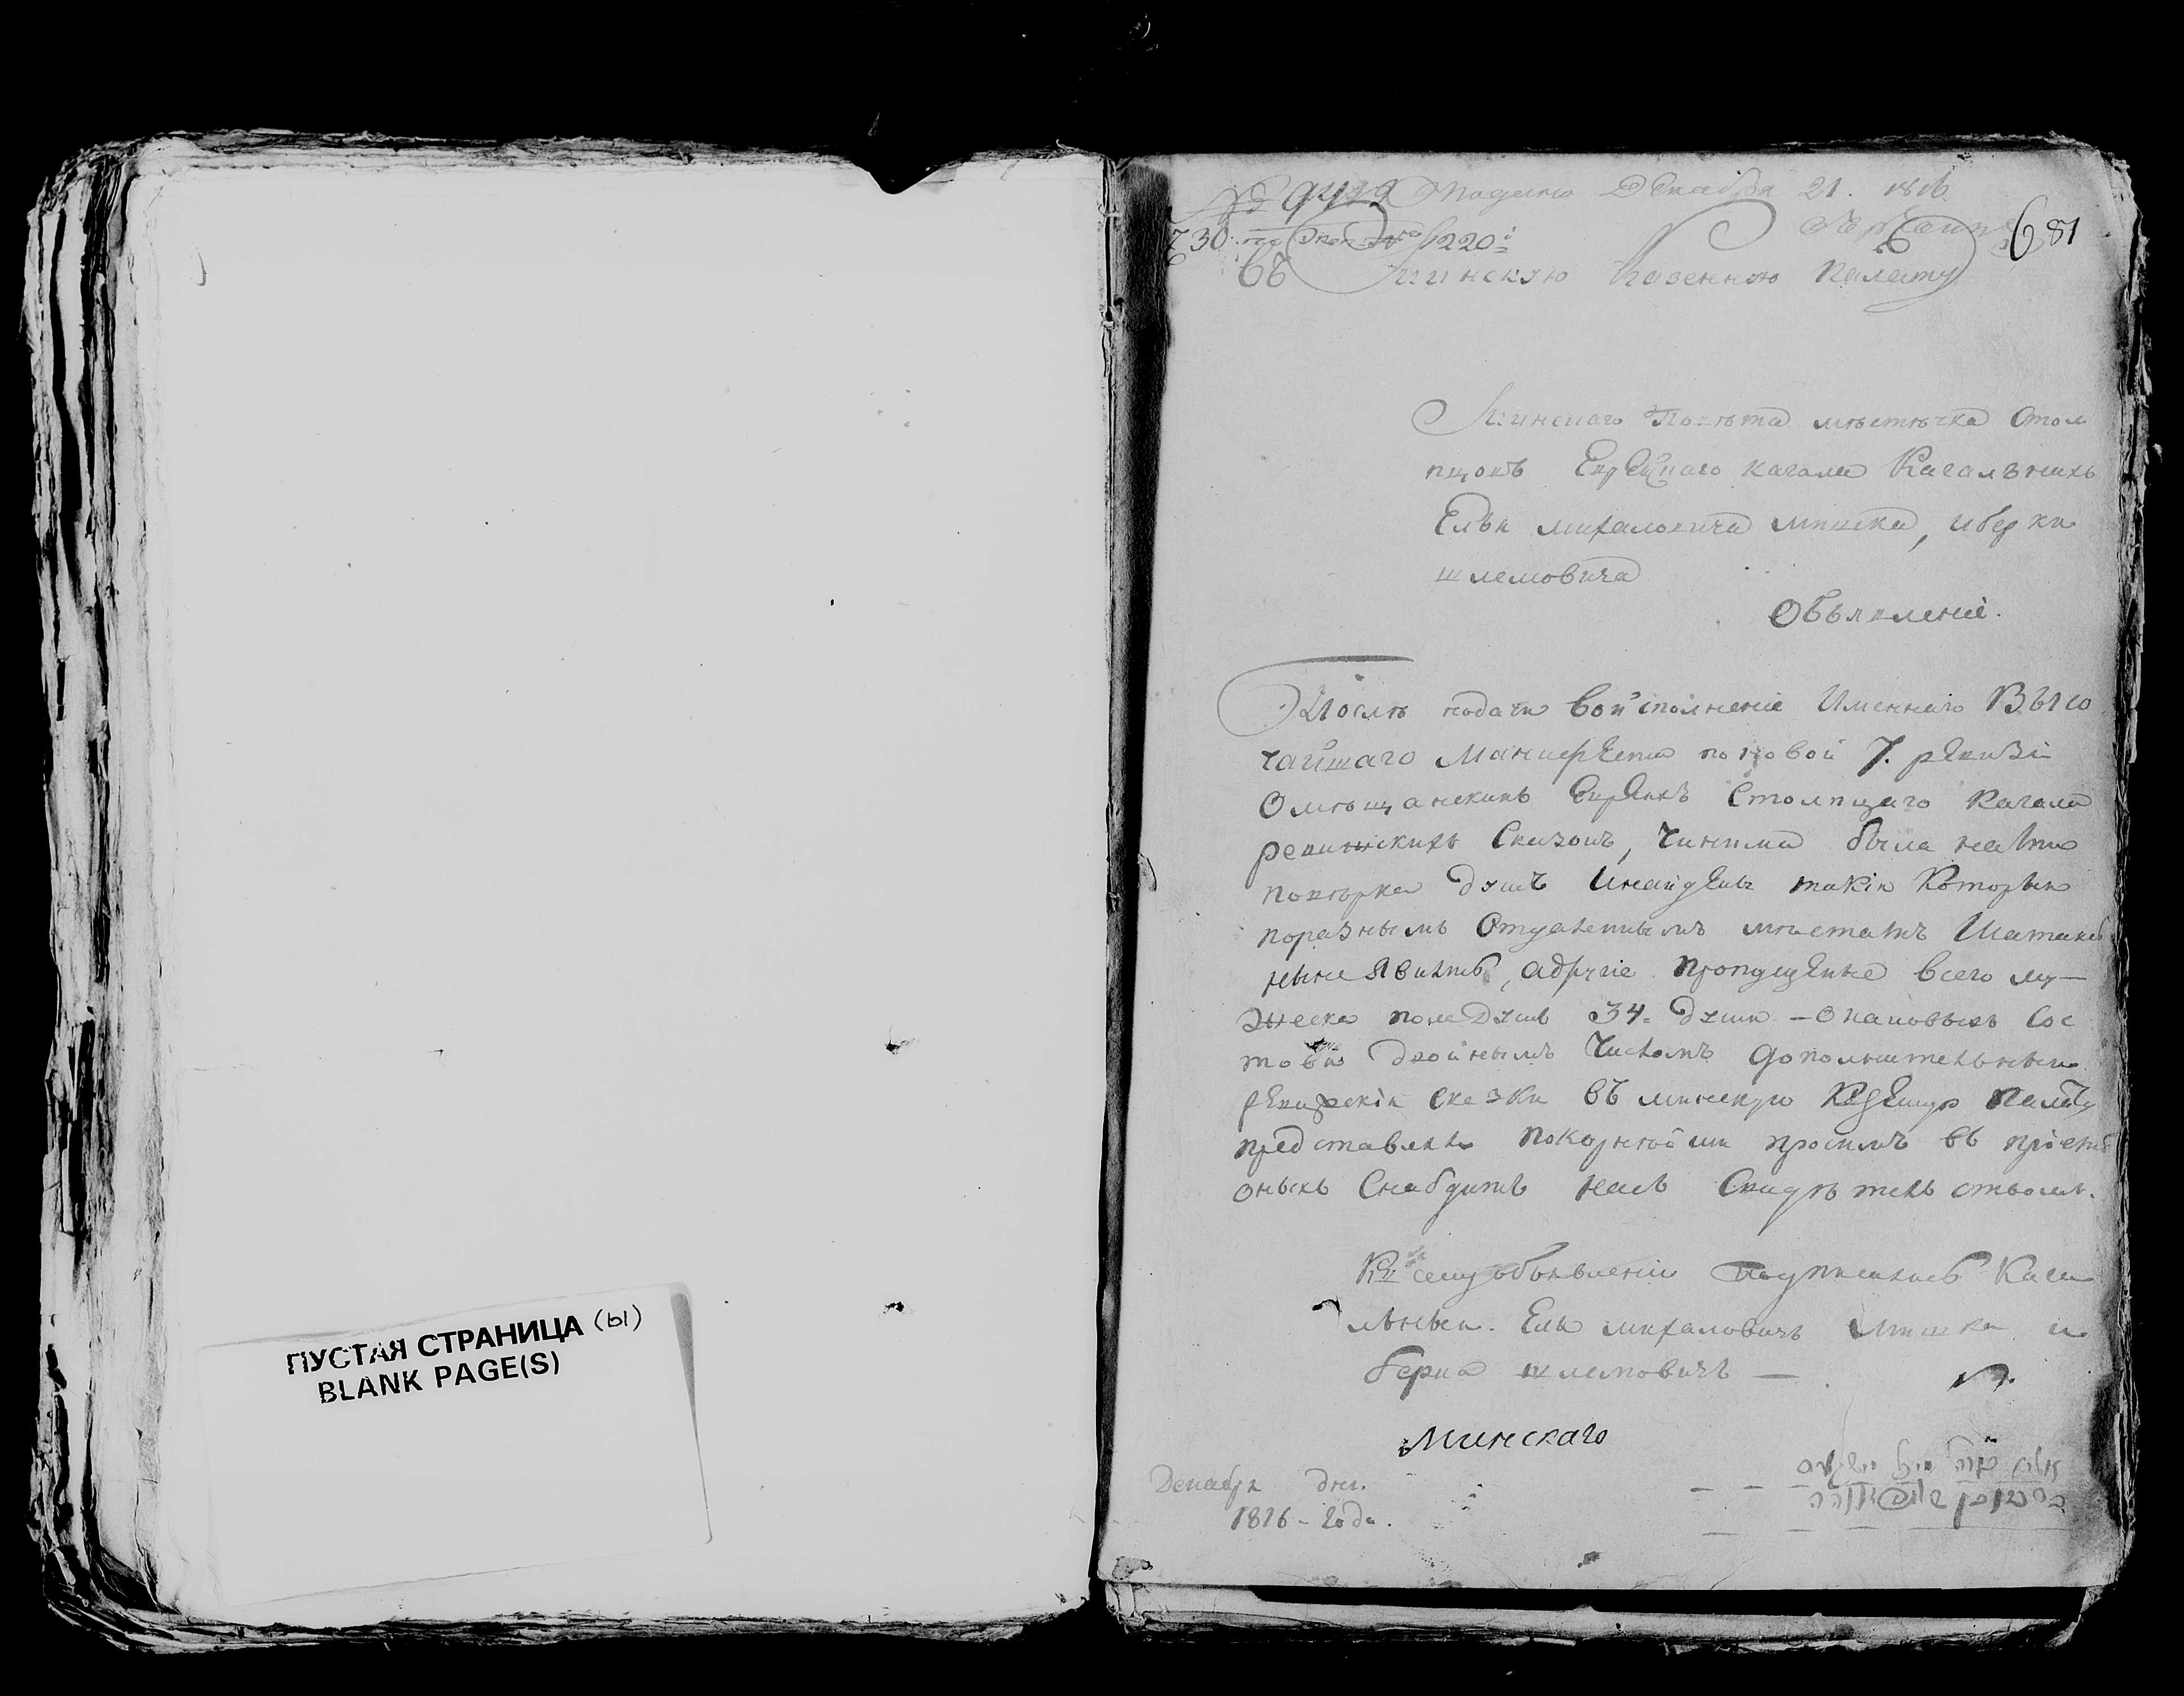 ПУСТАЯ СТРАНИЦА (ы)
BLANK PAGE(S)
Декабря 21. 1816
681
Въ Минскую Казенную Палату
Минскаго Повѣта мѣстѣчка Стол
пцовъ Еврейскаго кагала Кагальныхъ
Ельи михаловича мишка, иберки
шлемовича
Объявленіе.
Послѣ подачи воисполненіе Именнаго Высо
чайшаго Манифеста поновой 7. ревизіи
Омѣщанскихъ Евреяхъ Столпцаго Кагала
ревискихъ Сказокъ, Чинима была
повѣрка душъ Инайдены такія Которыя
поразнымъ Отдаленнымъ мѣстамъ
ныне явились, адругіе пропущенные всего му-
жеска пола Душъ 34. души - Окаковыхъ Сос
товя двойнымъ Числомъ дополнительныя
ревизскія сказки въ минскую Казенную Палату
представляя покорнѣйши просимъ въ пріемѣ
оныхъ Снабдить насъ Свидѣтельствомъ.
Къ сему объявленію Подписались Кага
льные. Ель михаловичъ мишка и
берка шлемовичъ —
Минскаго
Декабря дня.
1816 - Года.